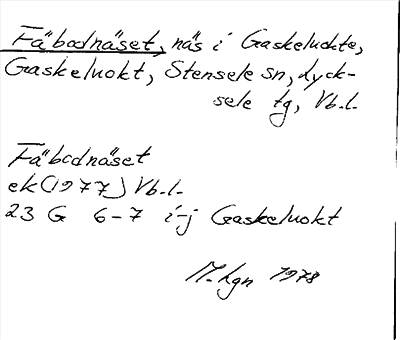 Fäbodnäset, näs i Gaskeluckte,
Gaskeluokt, Stensele sn, Lyck-
sele tg, Vb.l.
Fäbodnäset
ek (1977) Vb.l.
23 G 6-7 i-j Gaskeluokt
M. hgn 1978